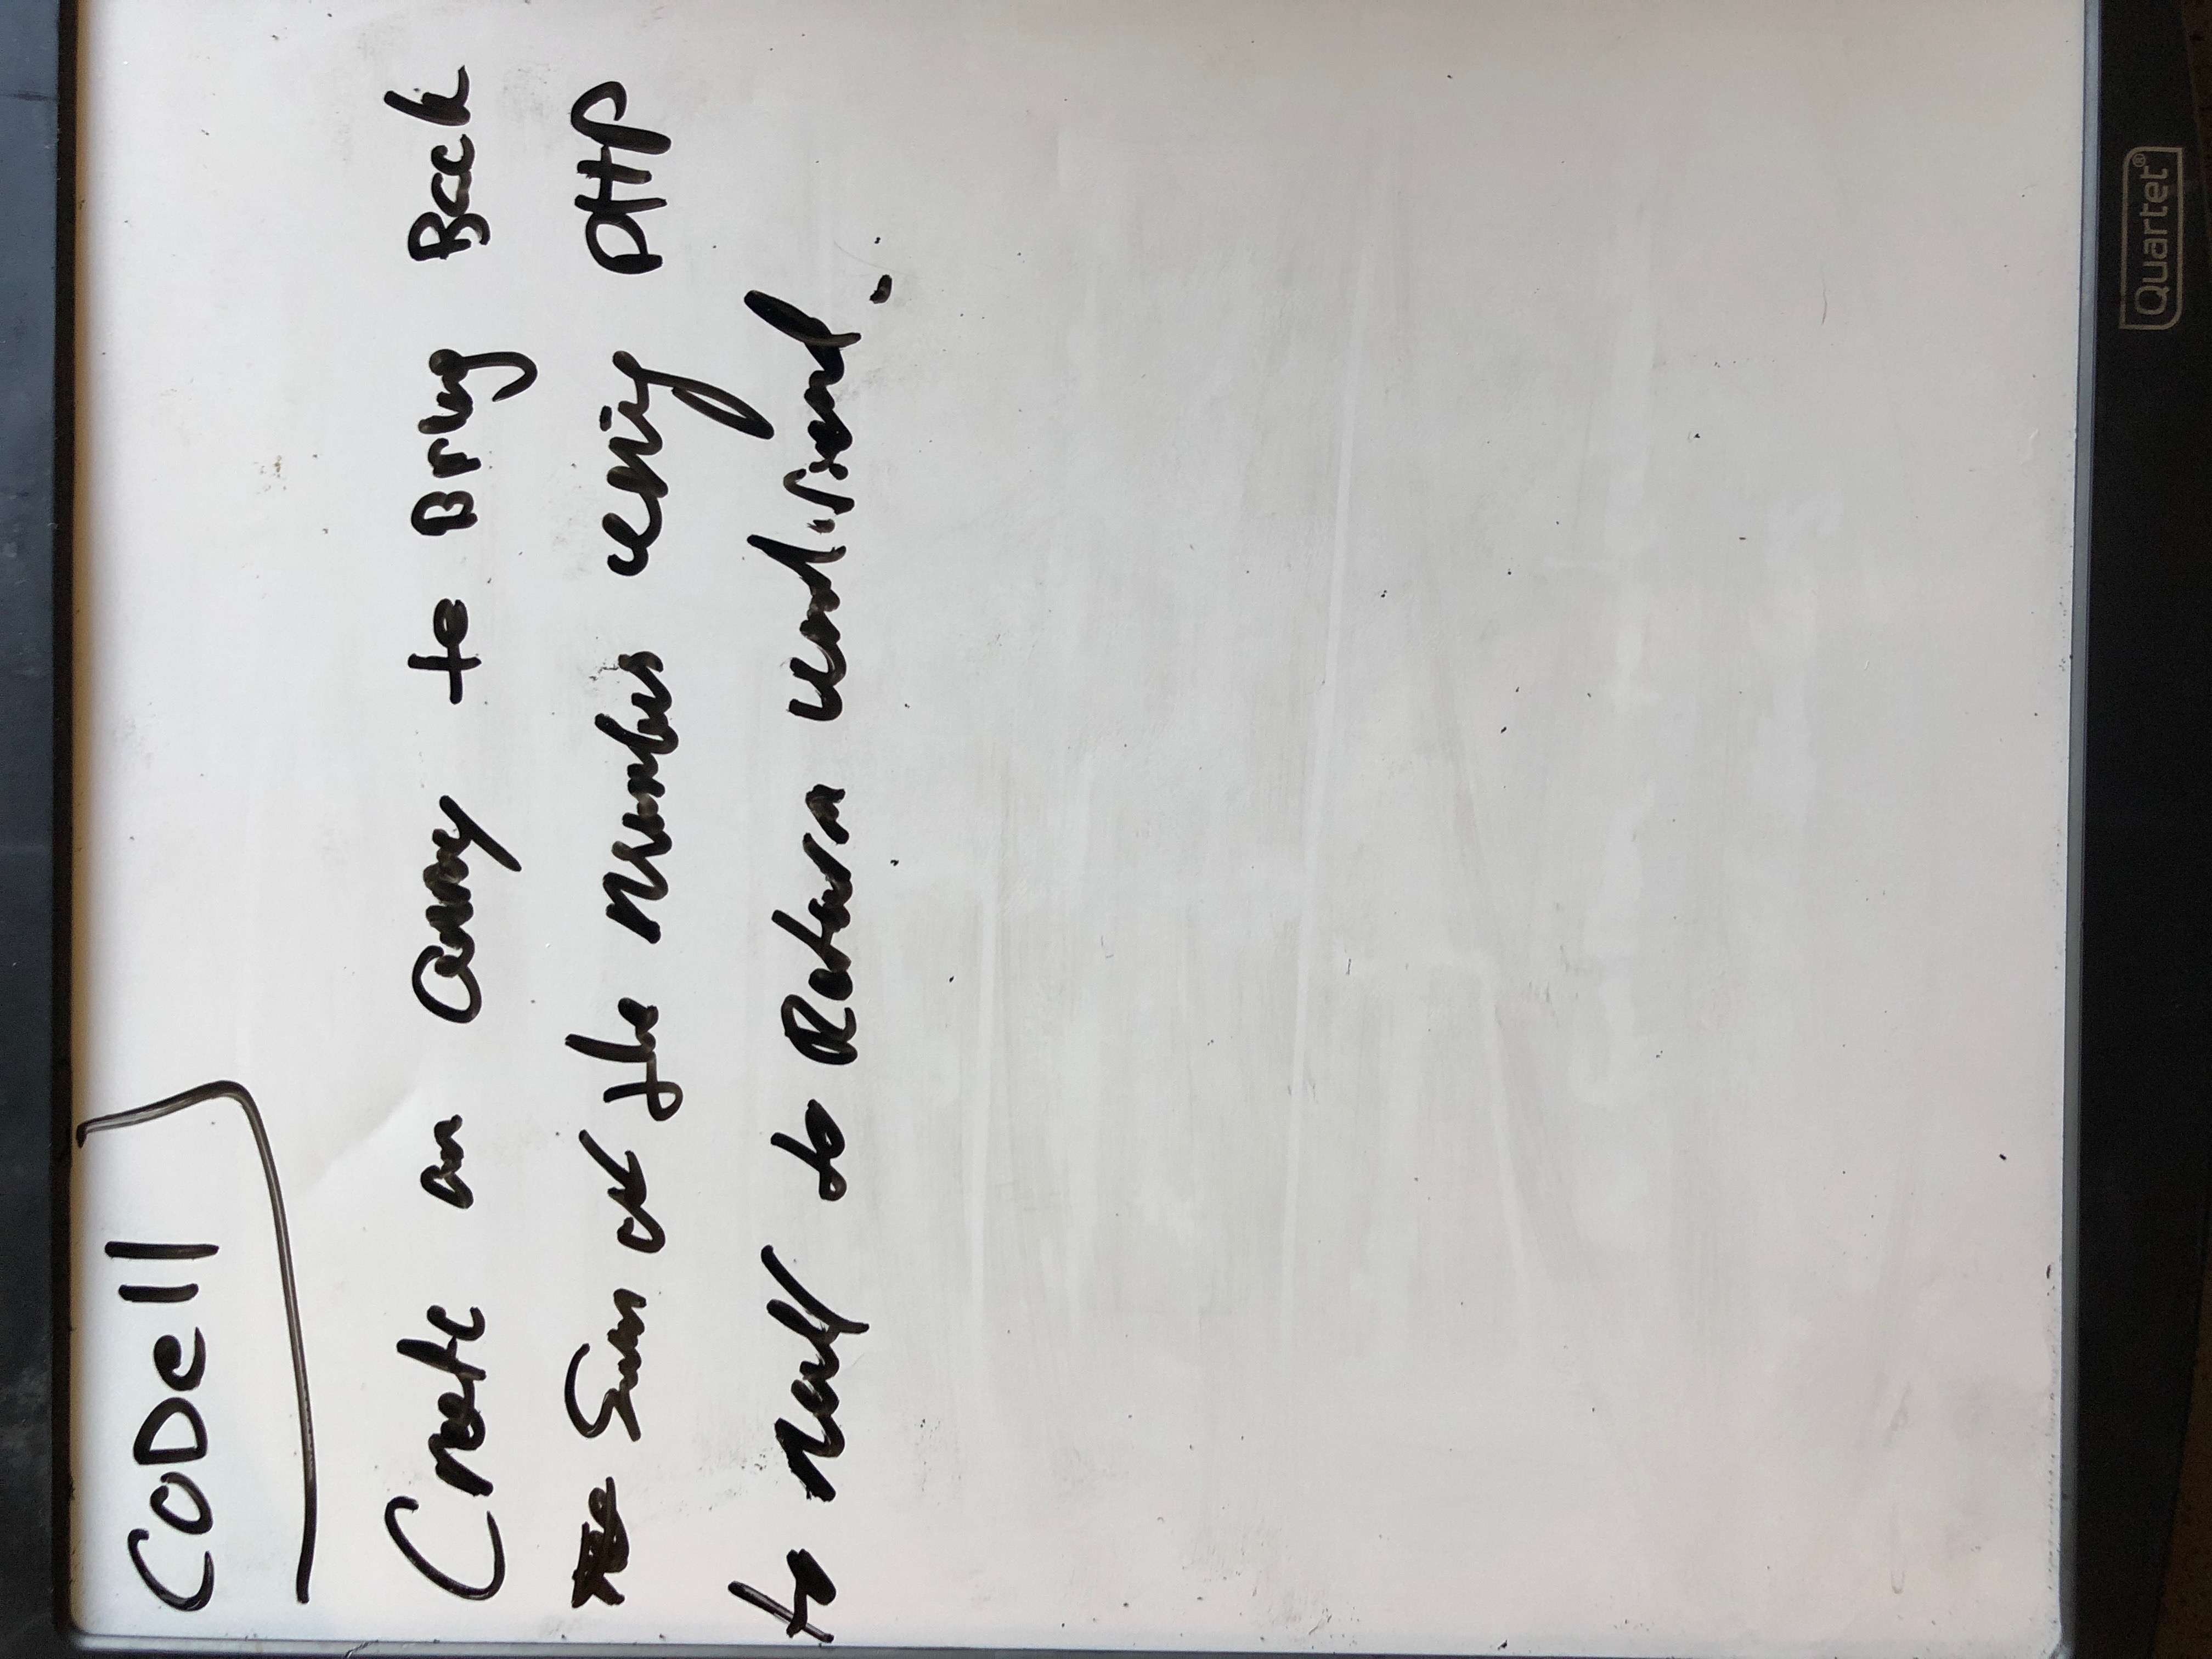 CoDell
Create an array to Bring Back
Sum of the numbers using PHP
to null to Return undifined.
Quartet®